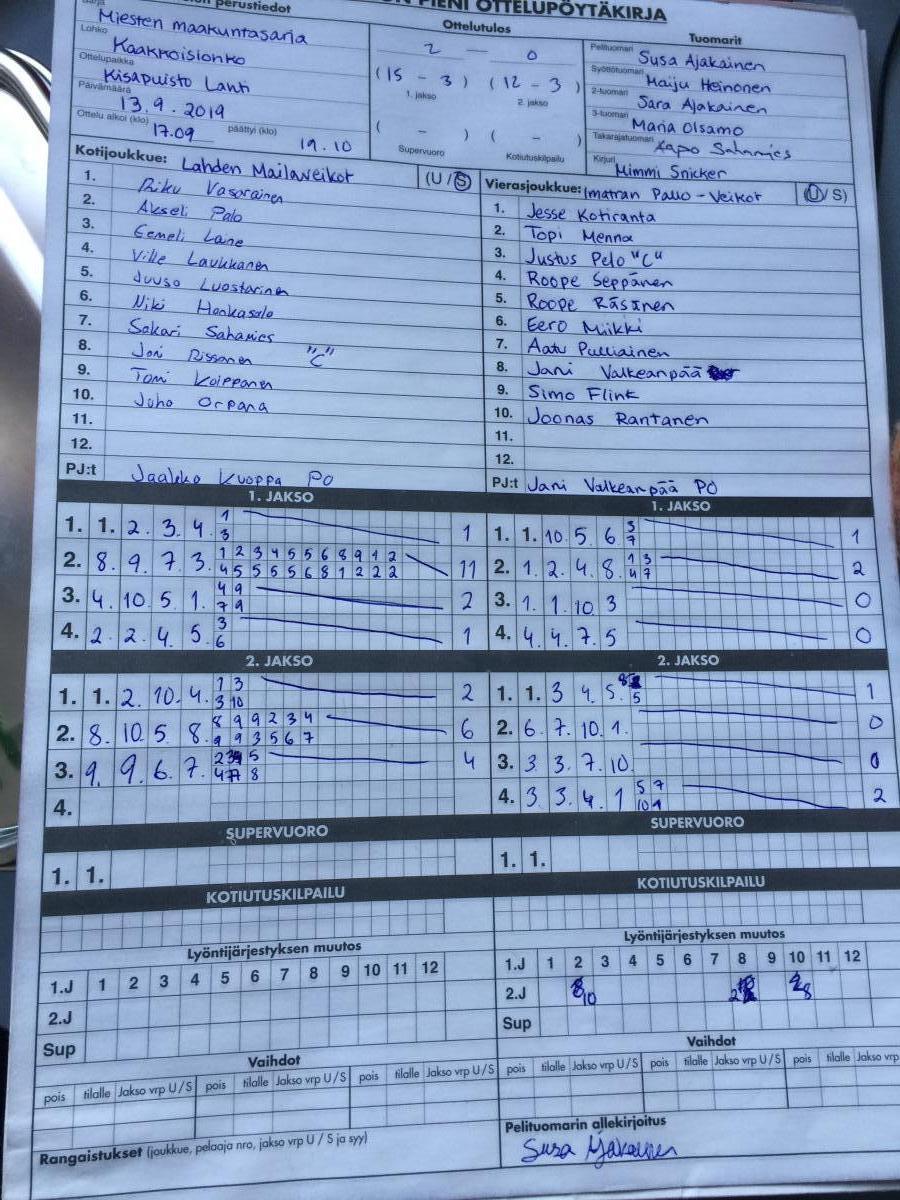 ON PIENI OTTELUPÖYTÄKIRJA
perustiedot
Miesten maakuntasarja
Lohko
Kaakkoislohko
Ottelupaikka
Kisapuisto Lahti
Päivämäärä
13.9.2019
Ottelu alkoi (klo) 17.09 päättyi (klo) 19.10
Ottelutulos
2 — 0
(15 - 3) (12 - 3)
1. jakso 2. jakso
( - ) ( - )
Supervuoro Kotiutuskilpailu
Tuomarit
Pelituomari Susa Ajakainen
Syöttötuomari Maiju Heinonen
2-tuomari Sara Ajakainen
3-tuomari Maria Olsamo
Takarajatuomari Aapo Sahamies
Kirjuri Mimmi Snicker
Kotijoukkue: Lahden Mailaveikot (U / S)
1. Riku Vasarainen
2. Akseli Palo
3. Eemeli Laine
4. Ville Laukkanen
5. Juuso Luostarinen
6. Niki Honkasalo
7. Sakari Sahamies
8. Joni Rissanen "C"
9. Tomi Koippanen
10. Juho Orpana
11.
12.
PJ:t Jaakko Kuoppa PO
Vierasjoukkue: Imatran Pallo-Veikot (U / S)
1. Jesse Kotiranta
2. Topi Menna
3. Justus Pelo "C"
4. Roope Seppänen
5. Roope Räsänen
6. Eero Miikki
7. Aatu Pulliainen
8. Jani Valkeanpää
9. Simo Flink
10. Joonas Rantanen
11.
12.
PJ:t Jani Valkeanpää PO
1. JAKSO
1. 1. 2. 3. 4. 1 1
3
2. 8. 9. 7. 3. 1 2 3 4 5 5 6 8 9 1 2 11
4 5 5 5 5 6 8 1 2 2 2
3. 4. 10. 5. 1. 4 9 2
7 9
4. 2. 2. 4. 5. 3 1
6
2. JAKSO
1. 1. 2. 10. 4. 1 3 2
3 10
2. 8. 10. 5. 8. 8 9 9 2 3 4 6
9 9 3 5 6 7
3. 9. 9. 6. 7. 4
4.
SUPERVUORO
1. 1.
KOTIUTUSKILPAILU
Lyöntijärjestyksen muutos
1.J 1 2 3 4 5 6 7 8 9 10 11 12
2.J
Sup
Vaihdot
pois tilalle Jakso vrp U / S pois tilalle Jakso vrp U / S pois tilalle Jakso vrp U / S
Rangaistukset (joukkue, pelaaja nro, jakso vrp U / S ja syy)
1. JAKSO
1. 1. 10. 5. 6. 3 1
7
2. 1. 2. 4. 8. 1 3 2
4 7
3. 1. 1. 10 3 0
4. 4. 4. 7. 5 0
2. JAKSO
1. 1. 3 4. 5. 8 1
5
2. 6. 7. 10. 1. 0
3. 3. 3. 7. 10. 0
4. 3. 3. 4. 1 5 7 2
10 1
SUPERVUORO
1. 1.
KOTIUTUSKILPAILU
Lyöntijärjestyksen muutos
1.J 1 2 3 4 5 6 7 8 9 10 11 12
2.J 10 2 8
Sup
Vaihdot
pois tilalle Jakso vrp U / S pois tilalle Jakso vrp U / S pois tilalle Jakso vrp
Pelituomarin allekirjoitus
Susa Ajakainen